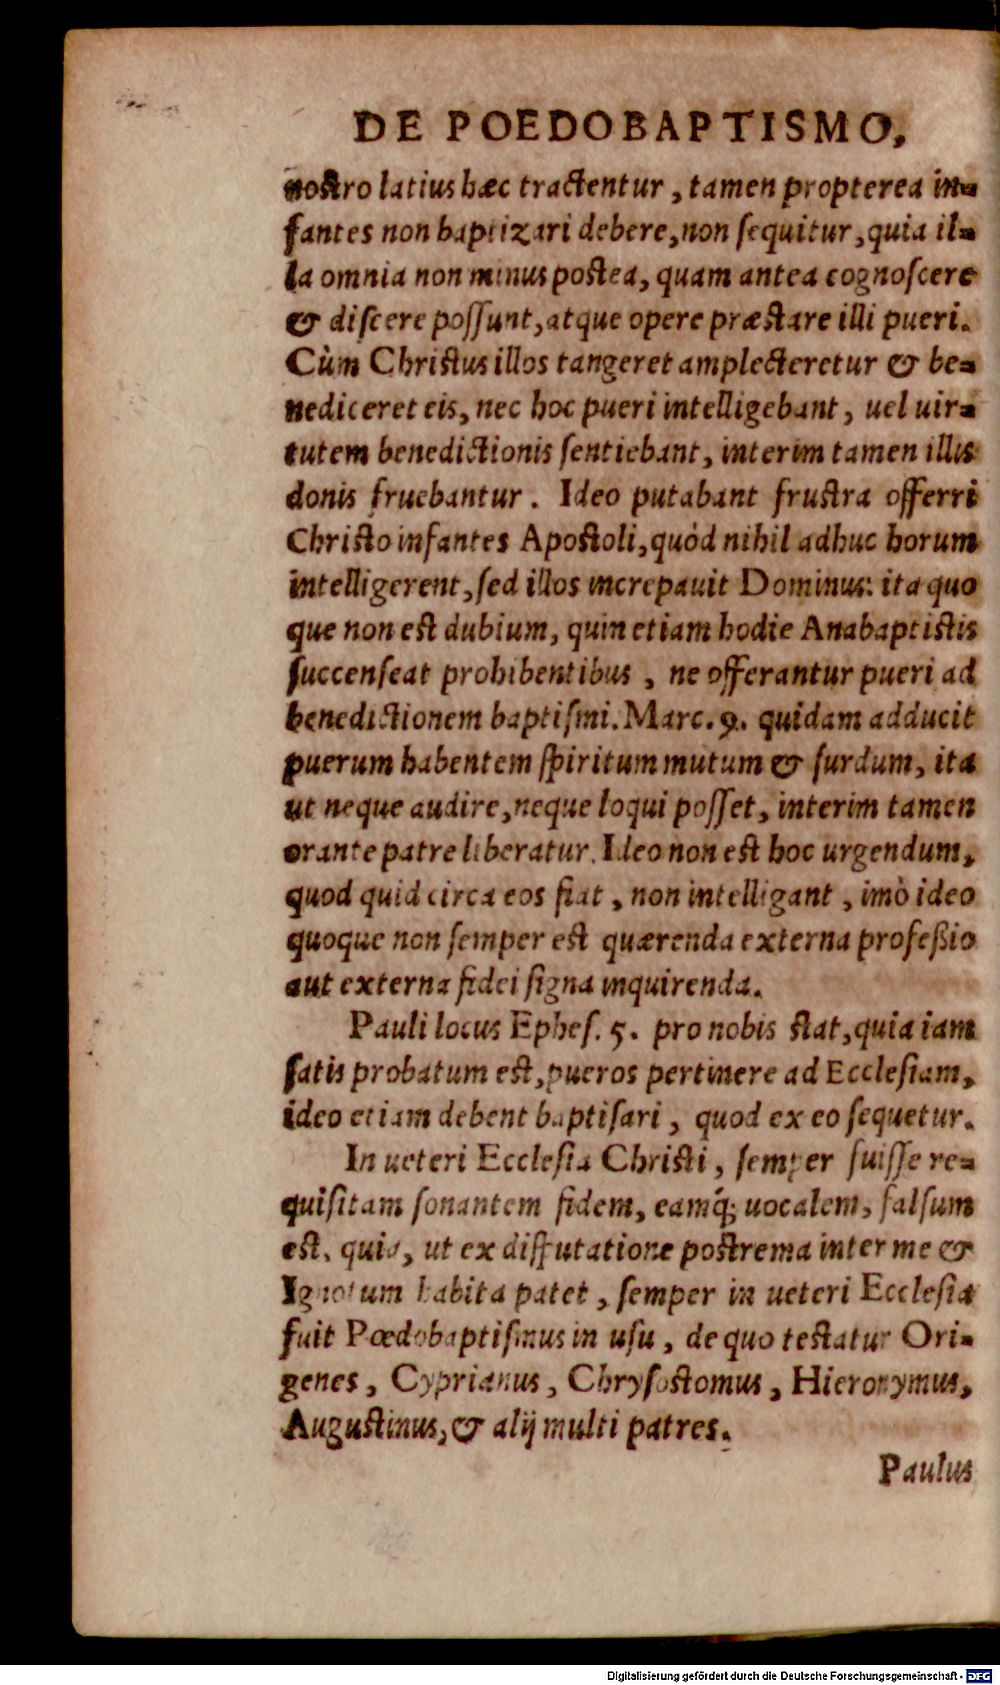 DE POEDOBAPTISMO,
nostro latius hæc tractentur, tamen propterea in-
fantes non baptizari debere, non sequitur, quia il-
la omnia non minus postea, quam antea cognoscere
& discere possunt, atque opere præstare illi pueri.
Cùm Christus illos tangeret amplecteretur & be-
nediceret eis, nec hoc pueri intelligebant, uel uir-
tutem benedictionis sentiebant, interim tamen illis
donis fruebantur. Ideo putabant frustra offerri
Christo infantes Apostoli, quòd nihil adhuc horum
intelligerent, sed illos increpauit Dominus: ita quo
que non est dubium, quin etiam hodie Anabaptistis
succenseat prohibentibus, ne offerantur pueri ad
benedictionem baptismi. Marc. 9. quidam adducit
puerum habentem spiritum mutum & surdum, ita
ut neque audire, neque loqui posset, interim tamen
orante patre liberatur. Ideo non est hoc urgendum,
quod quid circa eos fiat, non intelligant, imò ideo
quoque non semper est quærenda externa profeßio
aut externa fidei signa inquirenda.
Pauli locus Ephes. 5. pro nobis stat, quia iam
satis probatum est, pueros pertinere ad Ecclesiam,
ideo etiam debent baptisari, quod ex eo sequetur.
In ueteri Ecclesia Christi, semper fuisse re-
quisitam sonantem fidem, eamq́; uocalem, falsum
est, quia, ut ex disputatione postrema inter me &
Ignotum habita patet, semper in ueteri Ecclesia
fuit Pœdobaptismus in usu, de quo testatur Ori-
genes, Cyprianus, Chrysostomus, Hieronymus,
Augustinus, & alij multi patres.
Paulus
Digitalisierung gefördert durch die Deutsche Forschungsgemeinschaft - DFG